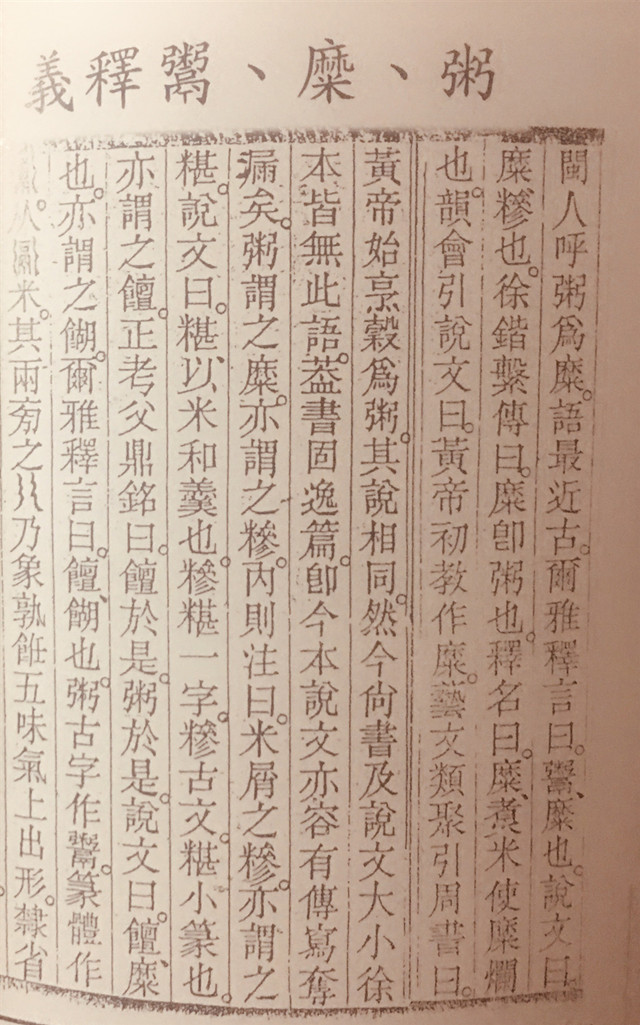 粥、糜、鬻釋義
閩人呼粥爲糜。語最近古。爾雅釋言曰。鬻、糜也。說文曰。
糜、糝也。徐鍇繫傳曰。糜卽粥也。釋名曰。糜、煮米使糜爛
也。韻會引說文曰。黃帝初教作糜。藝文類聚引周書曰。
黃帝始烹穀爲粥。其說相同。然今尙書及說文大小徐
本皆無此語。葢書固逸篇。卽今本說文亦容有傳寫奪
漏矣。粥謂之糜。亦謂之糝。內則注曰。米屑之糝。亦謂之
糂。說文曰。糂、以米和羹也。糝糂一字。糝古文。糂小篆也。
亦謂之饘。正考父鼎銘曰。饘於是。粥於是。說文曰。饘、糜
也。亦謂之餬。爾雅釋言曰。饘、餬也。粥古字作鬻。篆體作
从米。其兩旁之乃象孰飪五味氣上出形。隸省